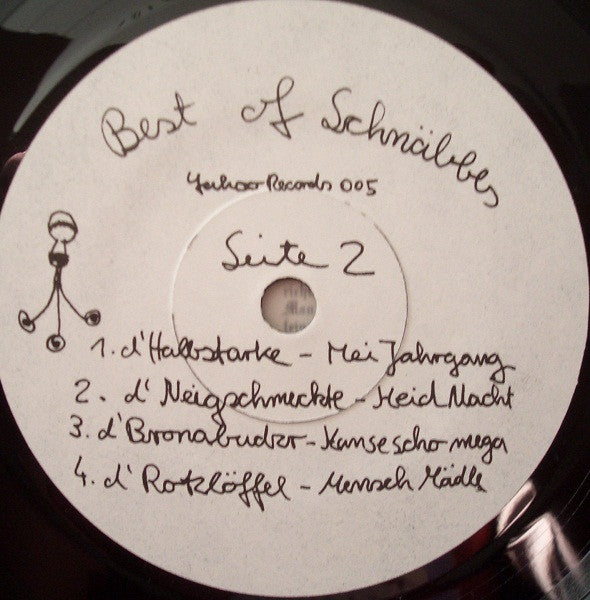 Best of Schnäbbes
Records 005
Seite 2
1. d'Halbstarke - Mei Jahrgang
2. d' Neigschmeckte - Heid Nacht
3. d'Bronabudzr - Kanse scho mega
4. d' Rotzlöffel - Mensch Mädle